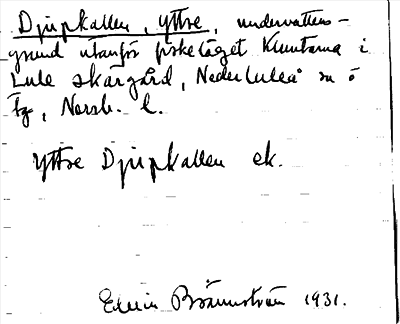 Djupkallen, yttre, undervattens-
grund utanför fiskeläget Kluntarna i
Lule skärgård, Nederluleå sn ö
fg, Norrb. l.
Yttre Djupkallen ek.
Edvin Brännström 1931.